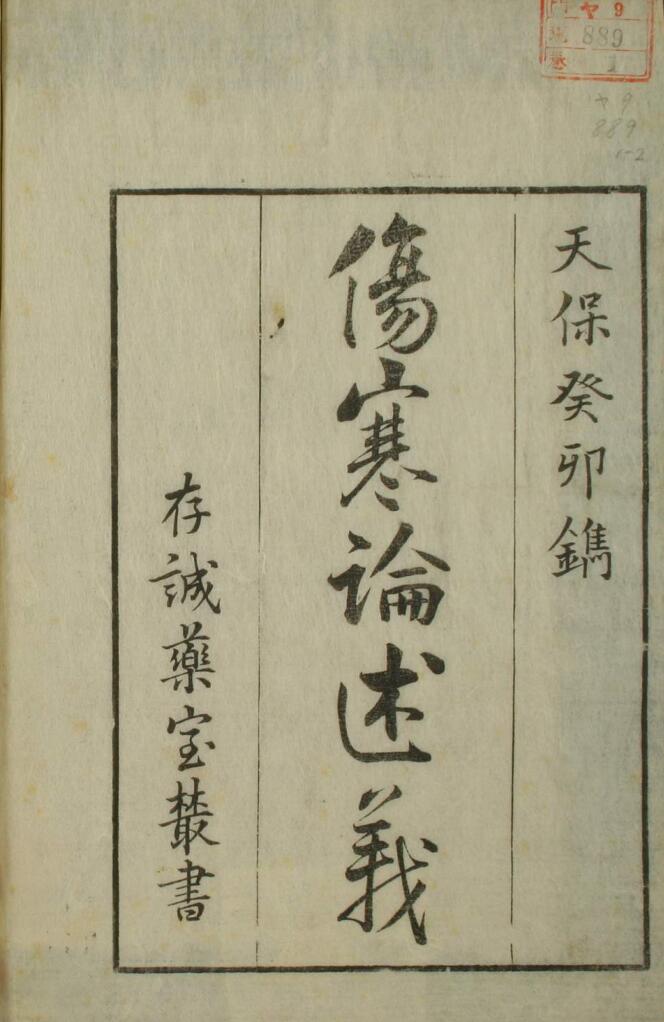 ヤ9
889
1
ヤ9
889
1-2
天保癸卯鐫
傷寒論述義
存誠藥室叢書